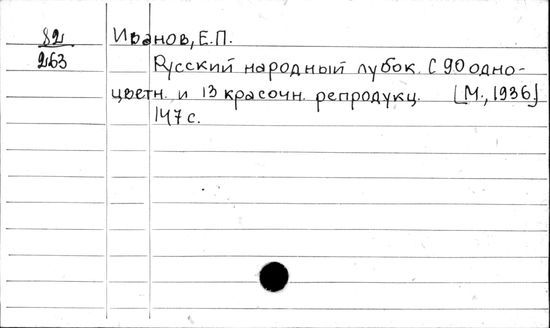 82
263
Иванов, Е.П.
Русский народный лубок. С 90 одно-
цветн. и 13 красочн. репродукц. [М., 1936]
147 с.